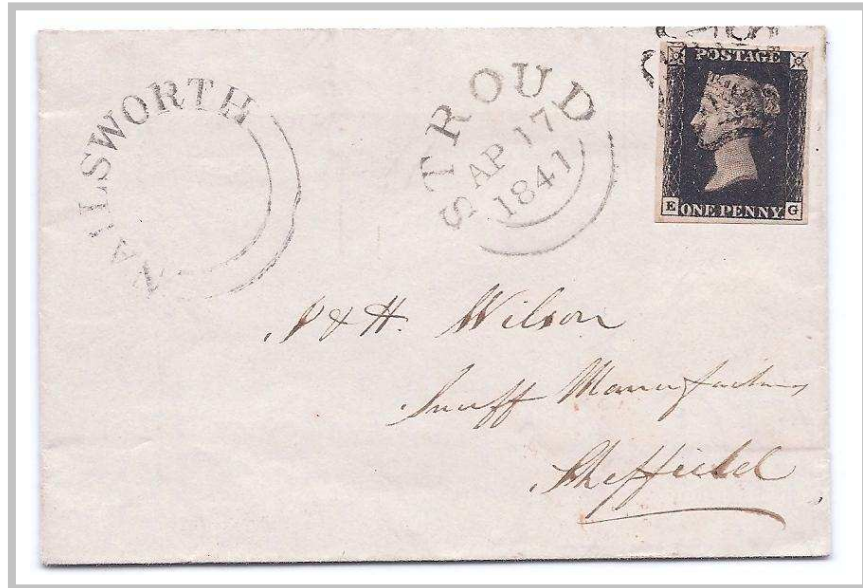 NAILSWORTH
STROUD
AP 17
1841
POSTAGE
ONE PENNY
E G
& H. Wilson
Snuff Manufacturers
Sheffield